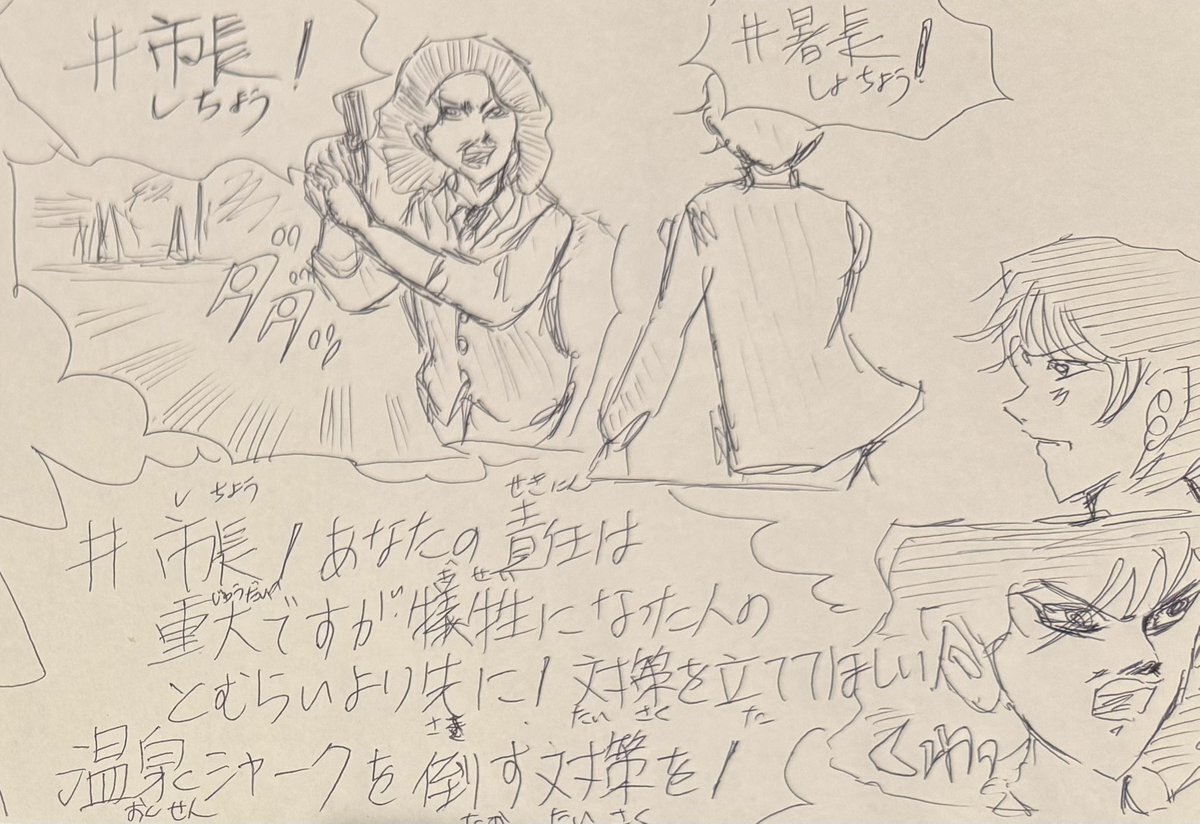 #市長!
しちょう
#暑長!
しょちょう
しちょう せきにん
#市長!あなたの責任は
じゅうだい ぎせい
重大ですが犠牲になった人の
とむらいより先に!対策を立ててほしい
さき たいさく た
温泉シャークを倒す対策を!
おんせん たいさく